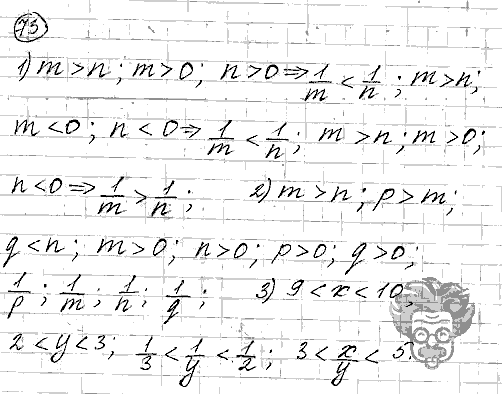 73
1) m > n; m > 0; n > 0 ⇒ 1/m < 1/n; m > n;
m < 0; n < 0 ⇒ 1/m < 1/n; m > n; m > 0;
n < 0 ⇒ 1/m > 1/n; 2) m > n; p > m;
q < n; m > 0; n > 0; p > 0; q > 0;
1/p; 1/m; 1/n; 1/q; 3) 9 < x < 10;
2 < y < 3; 1/3 < 1/y < 1/2; 3 < x/y < 5.